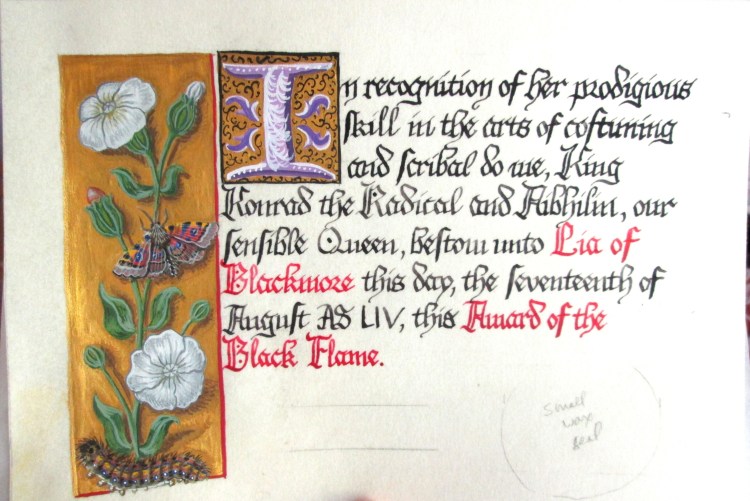 In recognition of her prodigious
skill in the arts of costuming
and scribal do we, King
Konrad the Radical and Aibhilin, our
sensible Queen, bestow unto Lia of
Blackmore this day, the seventeenth of
August AS LIV, this Award of the
Black Flame.
small
wax
seal